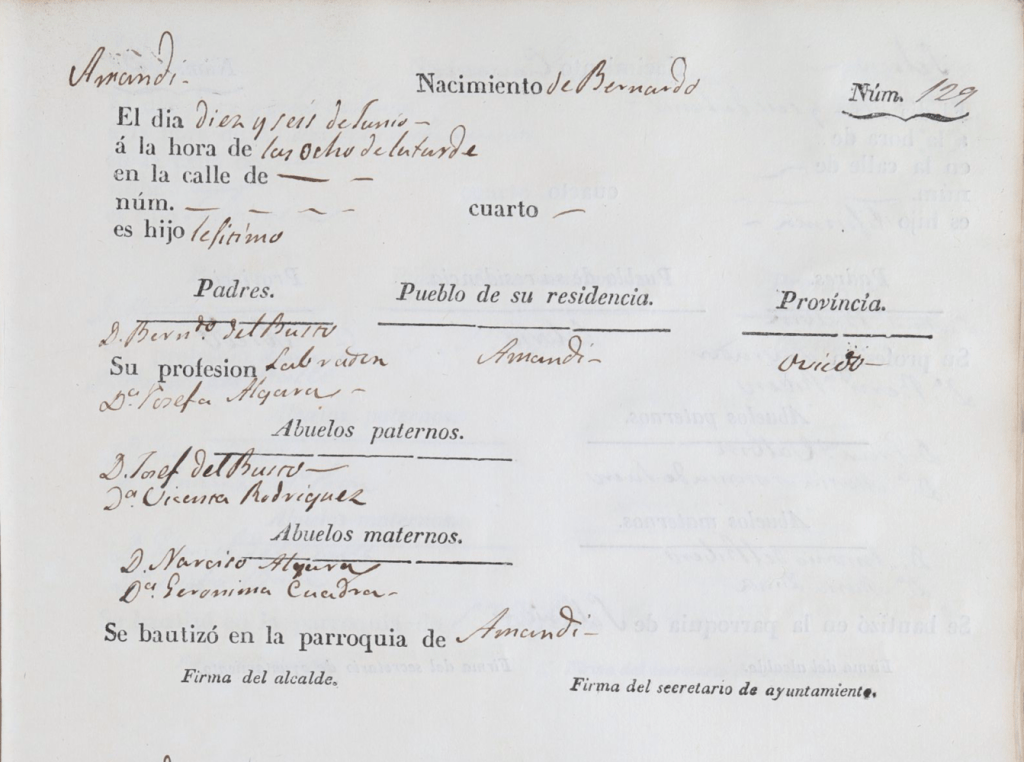 Amandi-
Nacimiento de Bernardo
Núm. 129
El dia diez y seis de Junio -
á la hora de las ocho de la tarde
en la calle de — — -
núm. — - - -
cuarto -
es hijo lesitimo
Padres.
Pueblo de su residencia.
Província.
D. Bern.do del Busto
Su profesion Labrador
Amandi-
Oviedo-
D.a Josefa Algara -
Abuelos paternos.
D. Josef del Busto -
D.a Vicenta Rodriguez
Abuelos maternos.
D. Narciso Algara
D.a Geronima Cuadra -
Se bautizó en la parroquia de Amandi-
Firma del alcalde.
Firma del secretario de ayuntamiento.